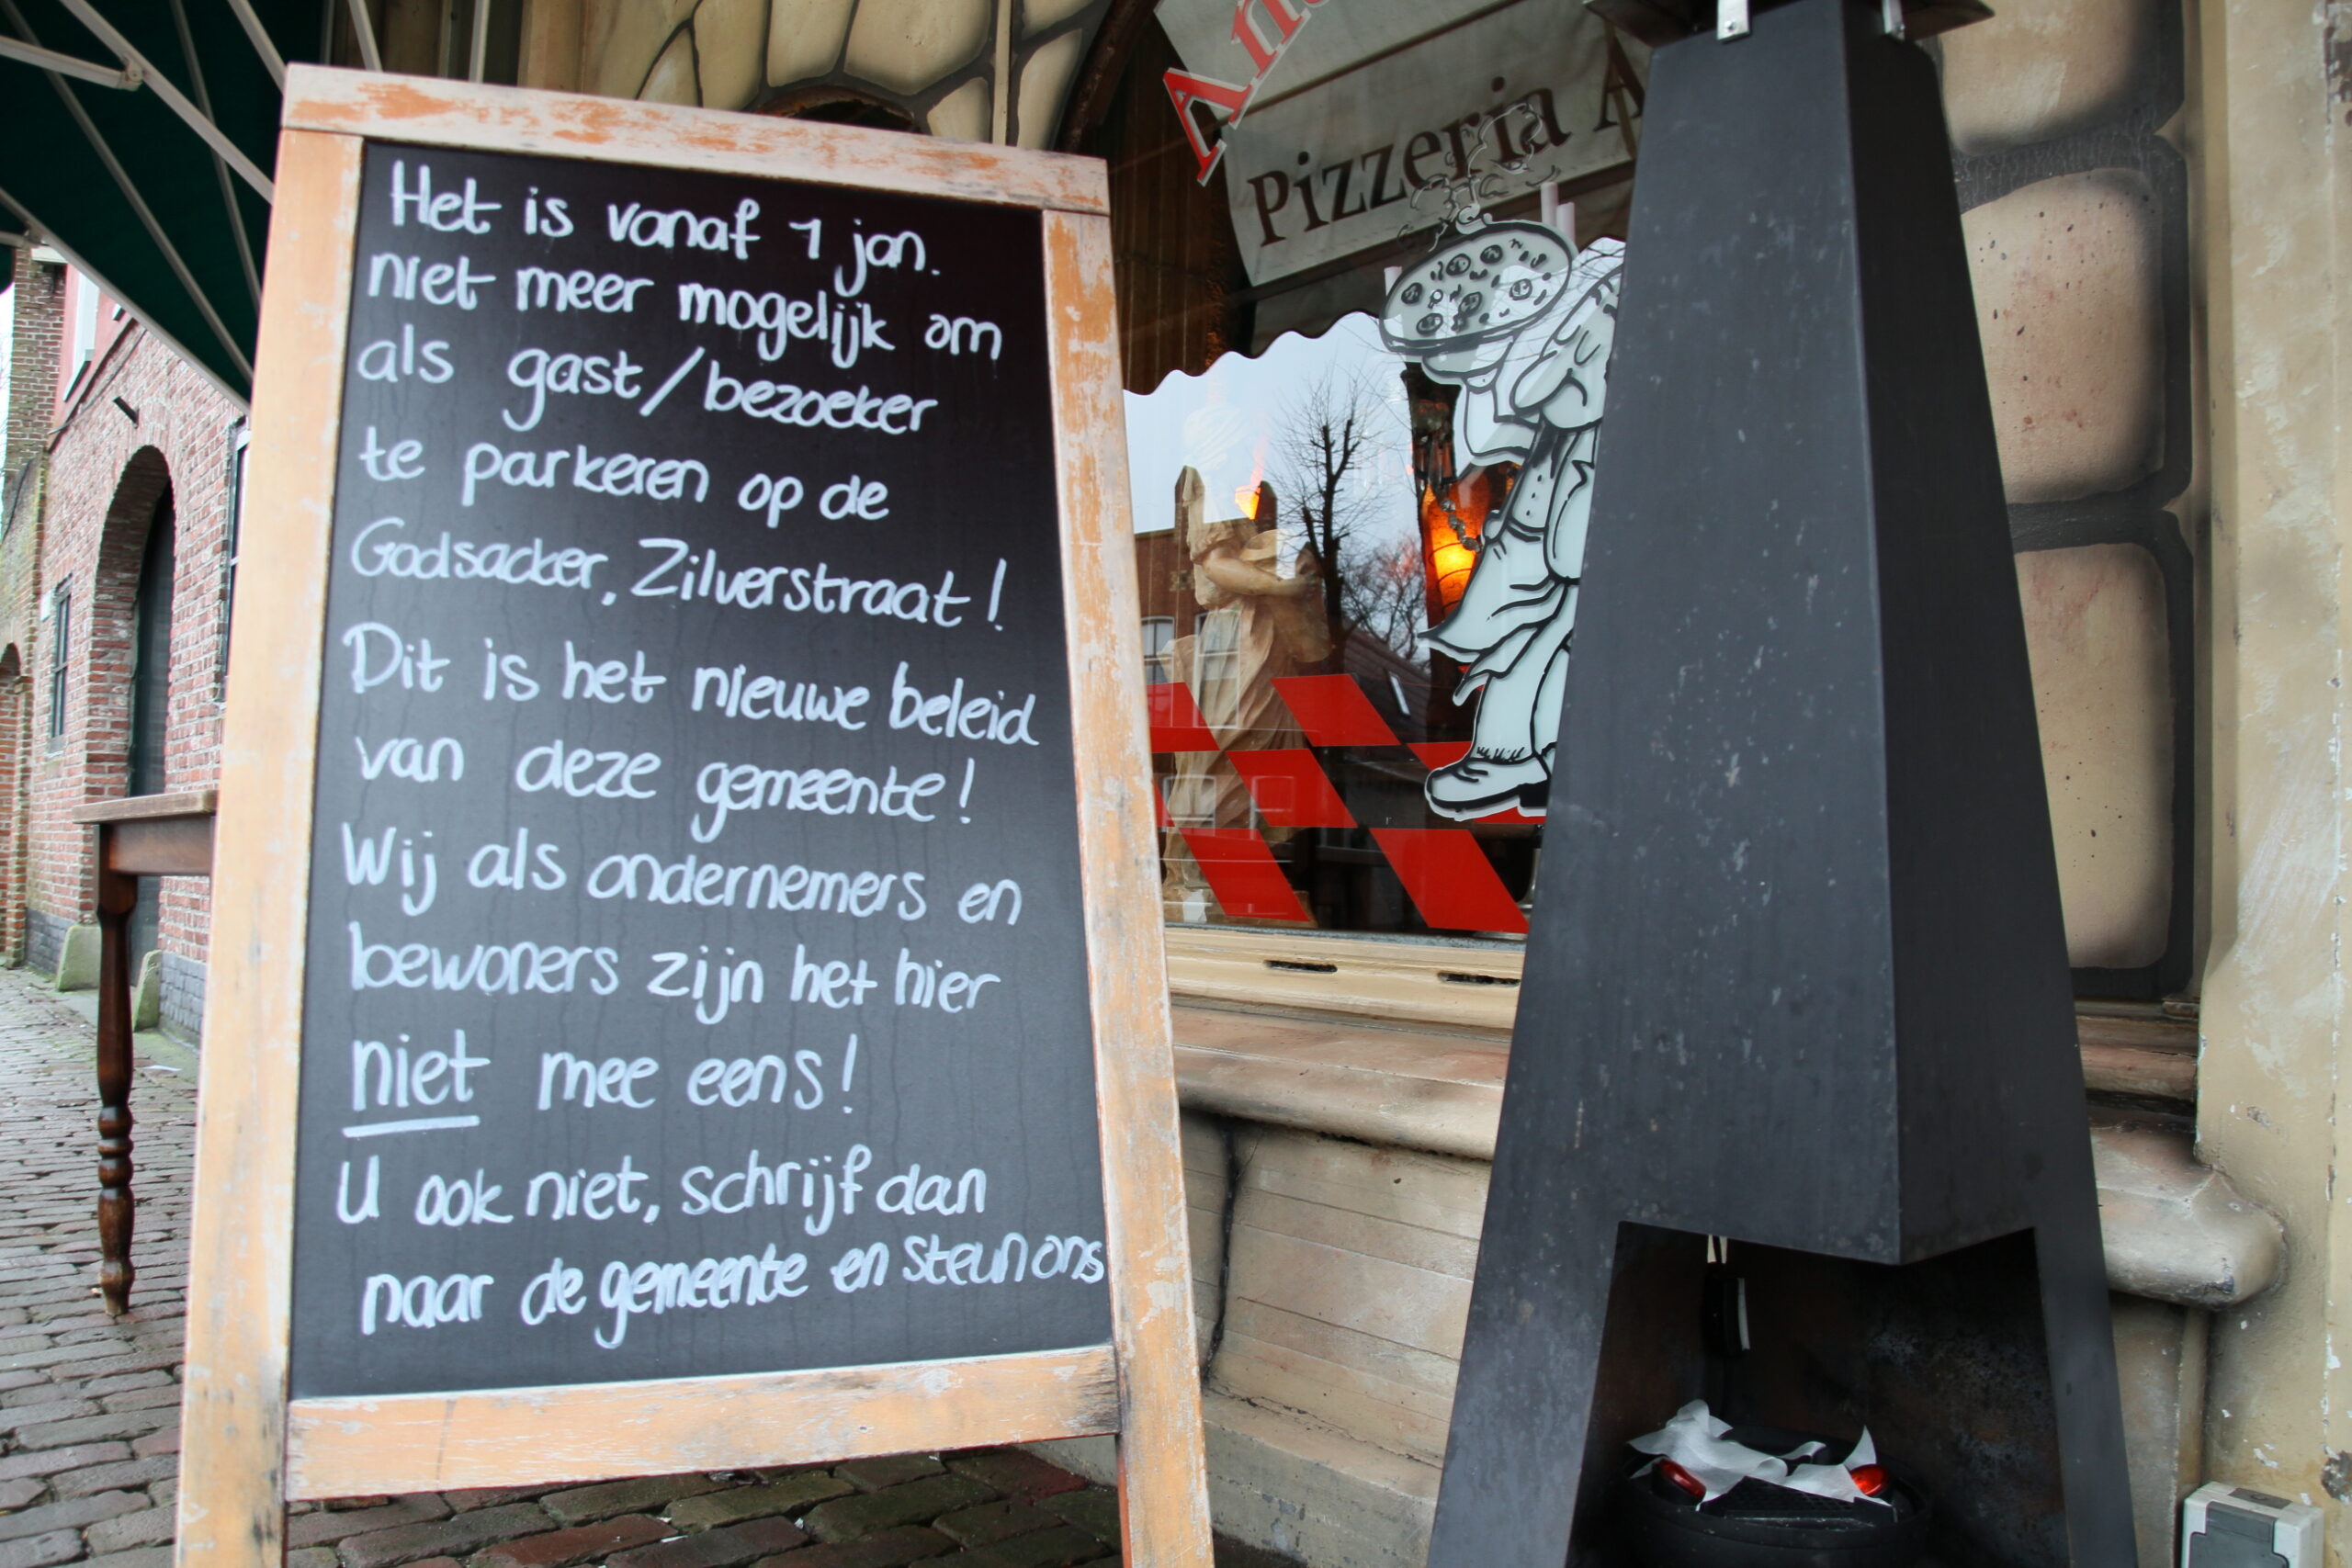 Het is vanaf 1 jan.
niet meer mogelijk om
als gast/bezoeker
te parkeren op de
Godsacker, Zilverstraat!
Dit is het nieuwe beleid
van deze gemeente!
Wij als ondernemers en
bewoners zijn het hier
niet mee eens!
U ook niet, schrijf dan
naar de gemeente en steun ons
Pizzeria